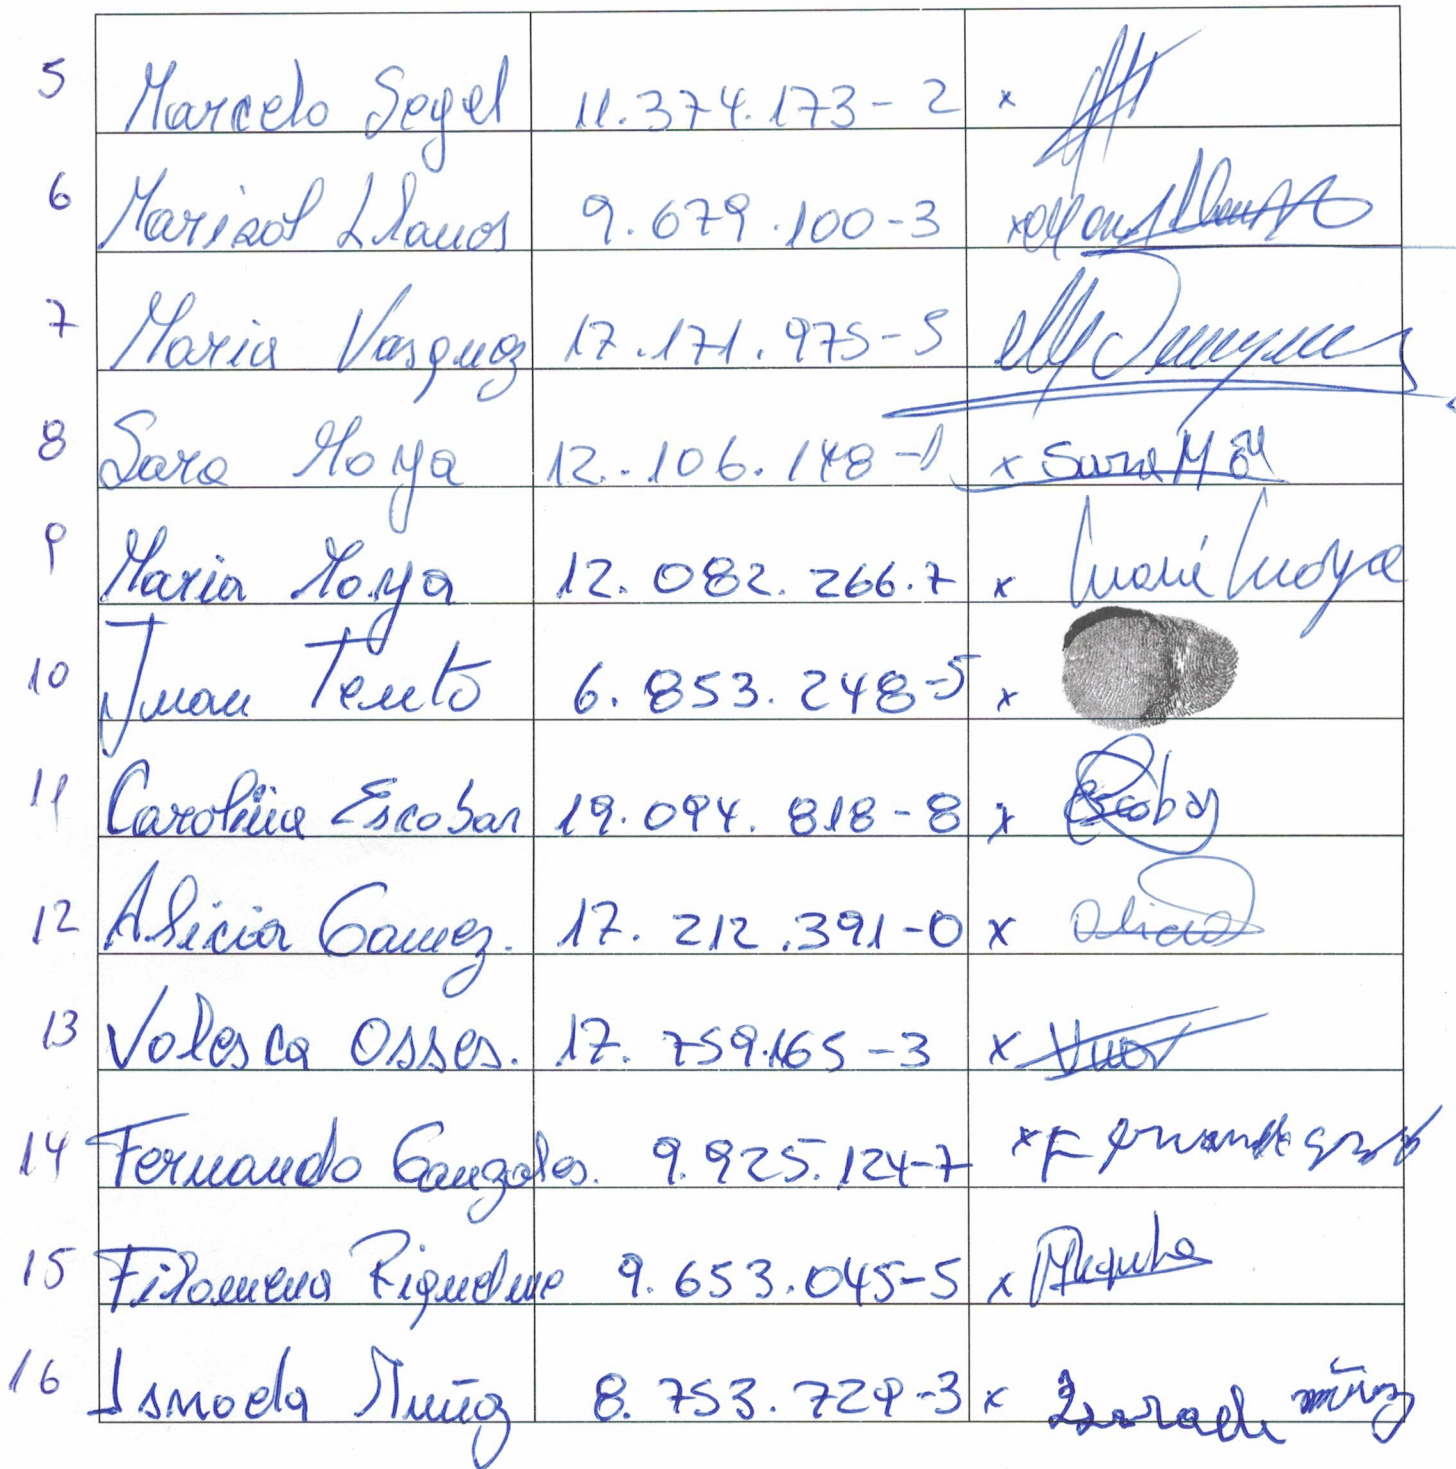 5 Marcelo Segel 11.374.173-2 x
6 Marisol Llanos 9.679.100-3 x
7 Maria Vasquez 17.171.975-5
8 Sara Moya 12.106.148-1 x Sara Moya
9 Maria Moya 12.082.266.7 x Maria Moya
10 Juan Tento 6.853.248-5 x
11 Carolina Escobar 19.094.818-8 x Escobar
12 Alicia Gamez. 17.212.391-0 x Alicia
13 Valesca Osses. 17.759.165-3 x
14 Fernando Gonzales. 9.925.124-7 x
15 Filomena Riquelme 9.653.045-5 x
16 Ismoda Muñoz 8.753.729-3 x muñoz